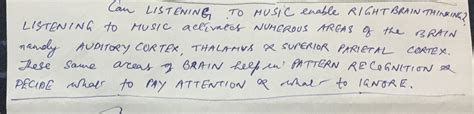 Can LISTENING TO MUSIC enable RIGHT BRAIN THINKING?
LISTENING to MUSIC activates NUMEROUS AREAS of the BRAIN
namely AUDITORY CORTEX, THALAMUS & SUPERIOR PARIETAL CORTEX.
These same areas of BRAIN help in PATTERN RECOGNITION &
DECIDE what to PAY ATTENTION & what to IGNORE.